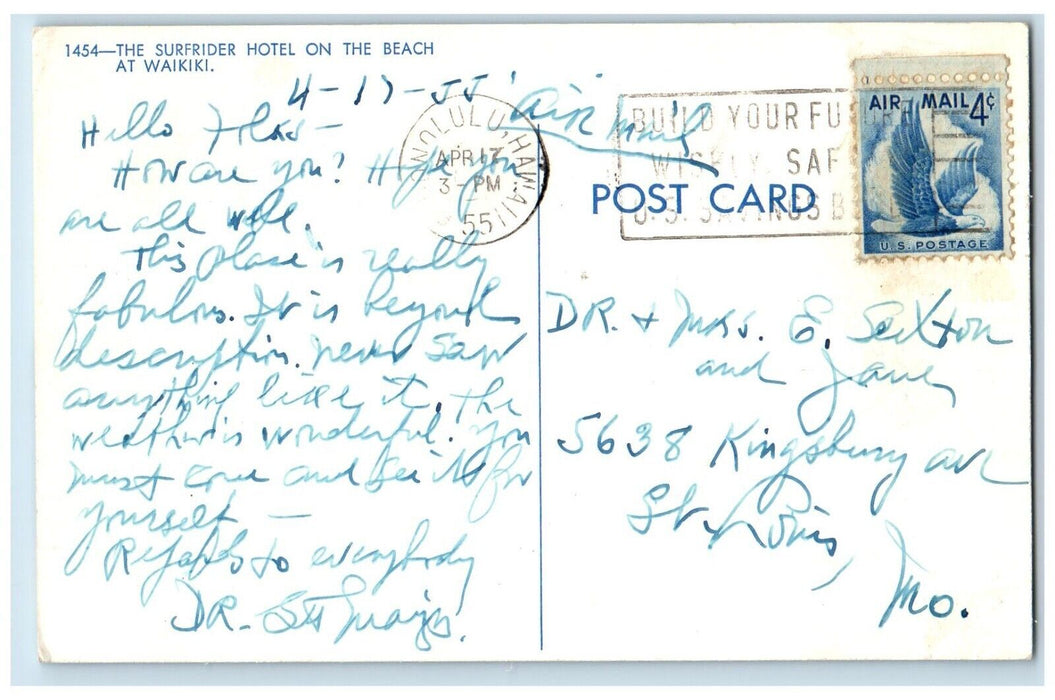 1454—THE SURFRIDER HOTEL ON THE BEACH
AT WAIKIKI.
4-17-55
Hello Folks—
How are you? Hope you
are all well.
This place is really
fabulous. It is beyond
description. never saw
anything like it. The
weather is wonderful. You
must come and see it for
yourself —
Regards to everybody
DR.
Air Mail
HONOLULU, HAWAII
APR 17
3 - PM
55
BUILD YOUR FUTURE
WISELY, SAF
U.S. SAVINGS B
AIR MAIL 4¢
U.S. POSTAGE
POST CARD
DR. + Mrs. E. Sexton
and Jane
5638 Kingsbury ave
St. Louis,
Mo.